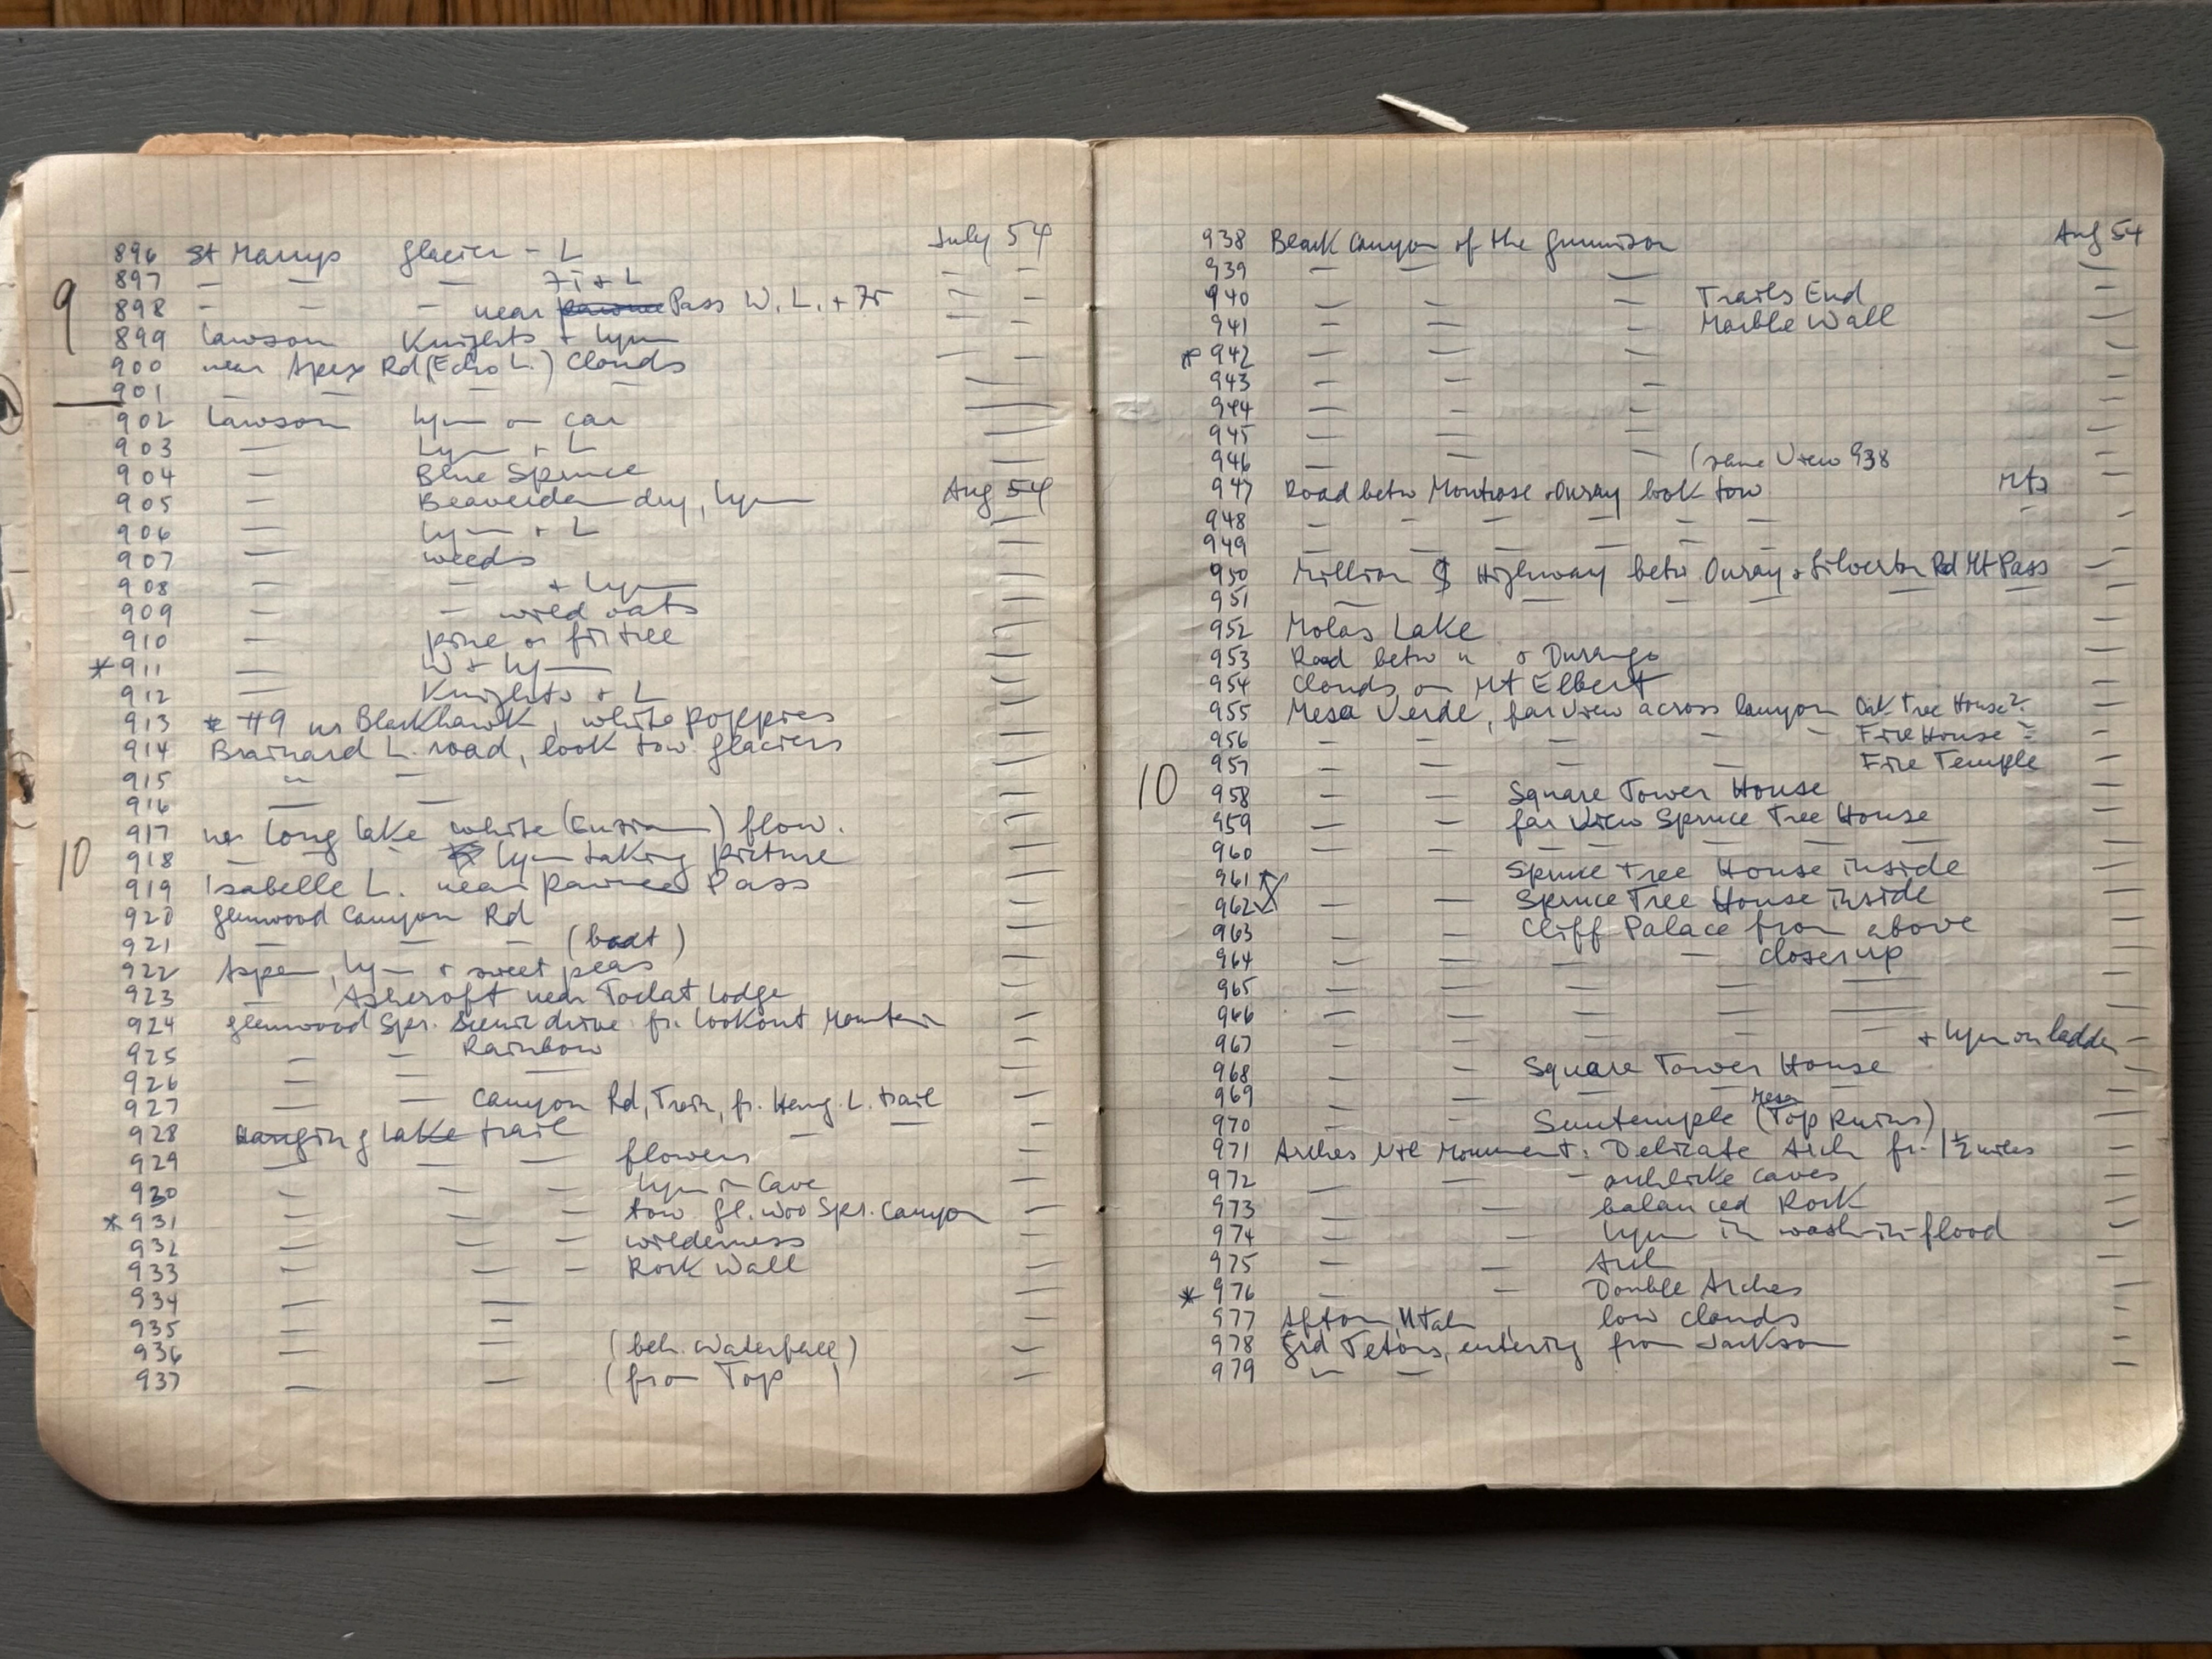 July 54
896 St Marrys Glacier - L
897 — — — Fi + L — —
9
898 — — — near Pawnee Pass W. L. + Fr — —
899 Lawson Knights + Lynn — —
900 near Apex Rd (Echo L.) Clouds — —
901 — — — —
902 Lawson Lynn on car —
903 — Lynn + L —
904 — Blue Spruce —
905 — Beaverdam dry, Lynn Aug 54
906 — Lynn + L —
907 — weeds —
908 — — + Lynn —
909 — — wild oats —
910 — pine or fir tree —
* 911 — W + Lynn —
912 — Knights + L —
913 * #9 nr Blackhawk, white poppies —
914 Brainard L. road, look tow. glaciers —
915 " — —
916 — — —
917 nr Long Lake white ( ) flow. —
10
918 — — — Lynn taking picture —
919 Isabelle L. near Pawnee Pass —
920 Glenwood Canyon Rd —
921 — — — (boat) —
922 Aspen, Lynn + sweet peas —
923 — Ashcroft near Toklat Lodge —
924 Glenwood Spr. Scenic drive fr. Lookout Mountain
925 — — Rainbow —
926 — — — —
927 — — Canyon Rd, Train, fr. Hang. L. trail —
928 Hanging Lake trail — — —
929 — — — flowers —
930 — — — Lynn in Cave —
* 931 — — — tow. Gl.woo Spr. Canyon —
932 — — — wilderness —
933 — — — Rock Wall —
934 — — —
935 — — —
936 — — (beh. Waterfall) —
937 — — (from Top) —
938 Black Canyon of the Gunnison Aug 54
939 — — — —
940 — — — Trails End —
941 — — — Marble Wall —
* 942 — — — —
943 — — — —
944 — — — —
945 — — — —
946 — — — (same View 938 —
947 Road betw Montrose + Ouray look tow Mts —
948 — — — — — — " —
949 — — — — — — —
950 Million $ Highway betw Ouray + Silverton Rd Mt Pass —
951 — — — — — — —
952 Molas Lake —
953 Road betw " + Durango —
954 Clouds on Mt Elbert —
955 Mesa Verde, far view across Canyon Oak Tree House ? —
956 — — — — — Fire House —
957 — — — — Fire Temple —
10
958 — — Square Tower House —
959 — — far View Spruce Tree House —
960 — — — — — — —
961 Spruce Tree House inside —
962 — — Spruce Tree House inside —
963 — — Cliff Palace from above —
964 — — — — closer up —
965 — — — — — —
966 — — — — — —
967 — — — — — + Lynn on ladder —
968 — — Square Tower House —
969 — — — — —
970 — — Suntemple (Mesa Top Ruins) —
971 Arches Ntl Monument. Delicate Arch fr. 1 1/2 miles —
972 — — — archlike caves —
973 — — balanced Rock —
974 — — Lynn in wash in flood —
975 — — Arch —
* 976 — — Double Arches —
977 Afton, Utah low clouds —
978 Grd Tetons, entering from Jackson —
979 " — —